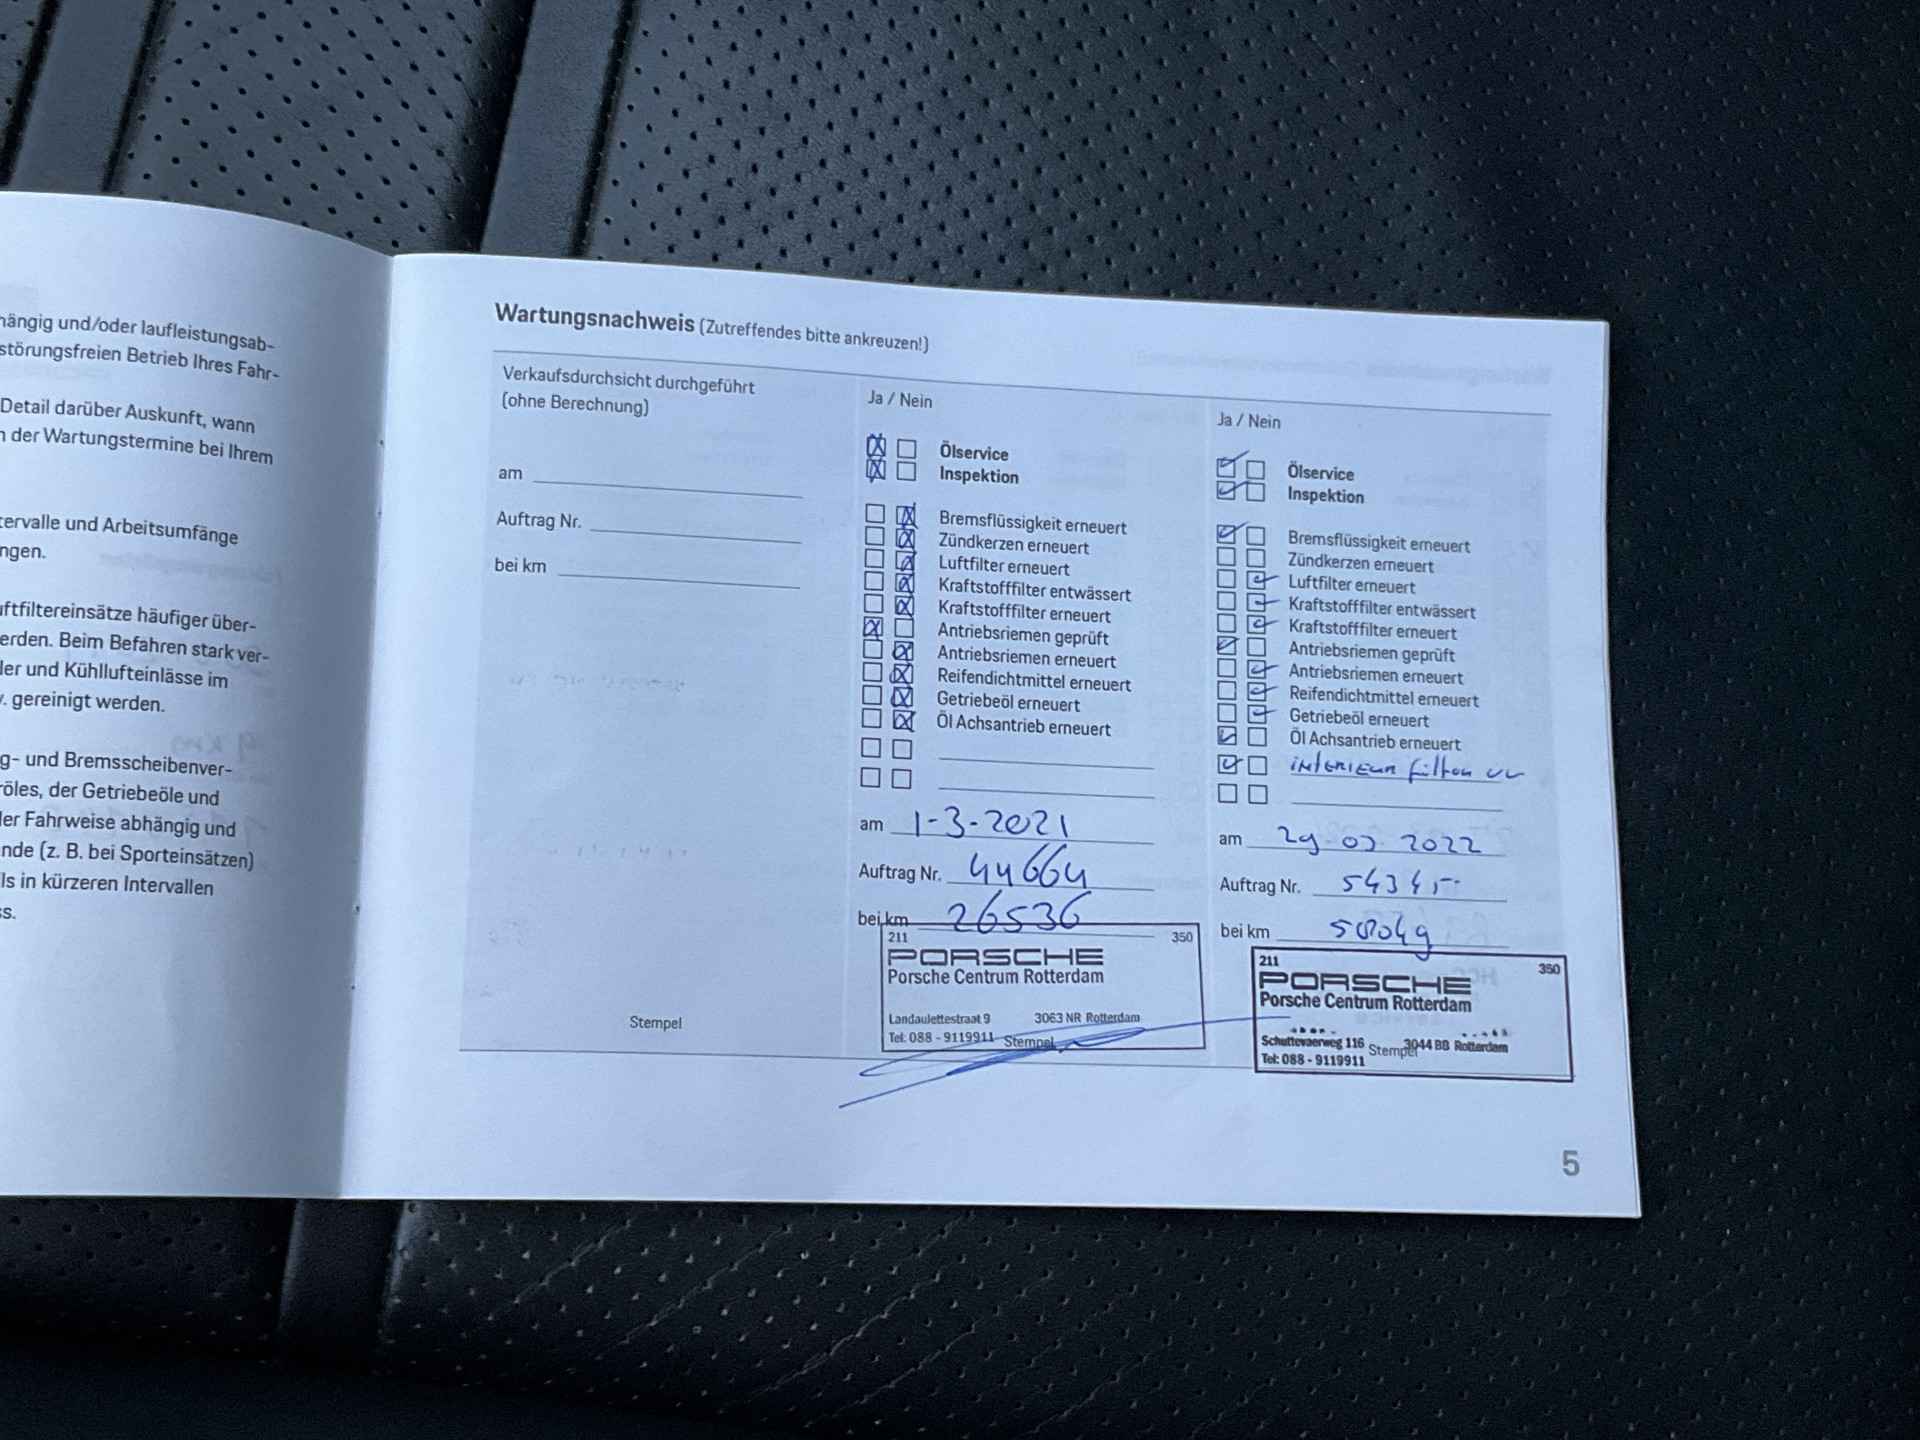 hängig und/oder laufleistungsab-
störungsfreien Betrieb Ihres Fahr-
Detail darüber Auskunft, wann
der Wartungstermine bei Ihrem
tervalle und Arbeitsumfänge
ngen.
uftfiltereinsätze häufiger über-
erden. Beim Befahren stark ver-
ler und Kühllufteinlässe im
gereinigt werden.
g- und Bremsscheibenver-
röles, der Getriebeöle und
der Fahrweise abhängig und
nde (z. B. bei Sporteinsätzen)
ls in kürzeren Intervallen
s.
Wartungsnachweis (Zutreffendes bitte ankreuzen!)
Verkaufsdurchsicht durchgeführt
(ohne Berechnung)
am
Auftrag Nr.
bei km
Stempel
Ja / Nein
Ölservice
Inspektion
Bremsflüssigkeit erneuert
Zündkerzen erneuert
Luftfilter erneuert
Kraftstofffilter entwässert
Kraftstofffilter erneuert
Antriebsriemen geprüft
Antriebsriemen erneuert
Reifendichtmittel erneuert
Getriebeöl erneuert
Öl Achsantrieb erneuert
am 1-3-2021
Auftrag Nr. 44664
bei km 26536
211 350
PORSCHE
Porsche Centrum Rotterdam
Landaulettestraat 9 3063 NR Rotterdam
Tel: 088 - 9119911 Stempel
Ja / Nein
Ölservice
Inspektion
Bremsflüssigkeit erneuert
Zündkerzen erneuert
Luftfilter erneuert
Kraftstofffilter entwässert
Kraftstofffilter erneuert
Antriebsriemen geprüft
Antriebsriemen erneuert
Reifendichtmittel erneuert
Getriebeöl erneuert
Öl Achsantrieb erneuert
interieur
am 2022
Auftrag Nr.
bei km
211 350
PORSCHE
Porsche Centrum Rotterdam
Schuttevaerweg 116 3044 BB Rotterdam
Stempel
Tel: 088 - 9119911
5